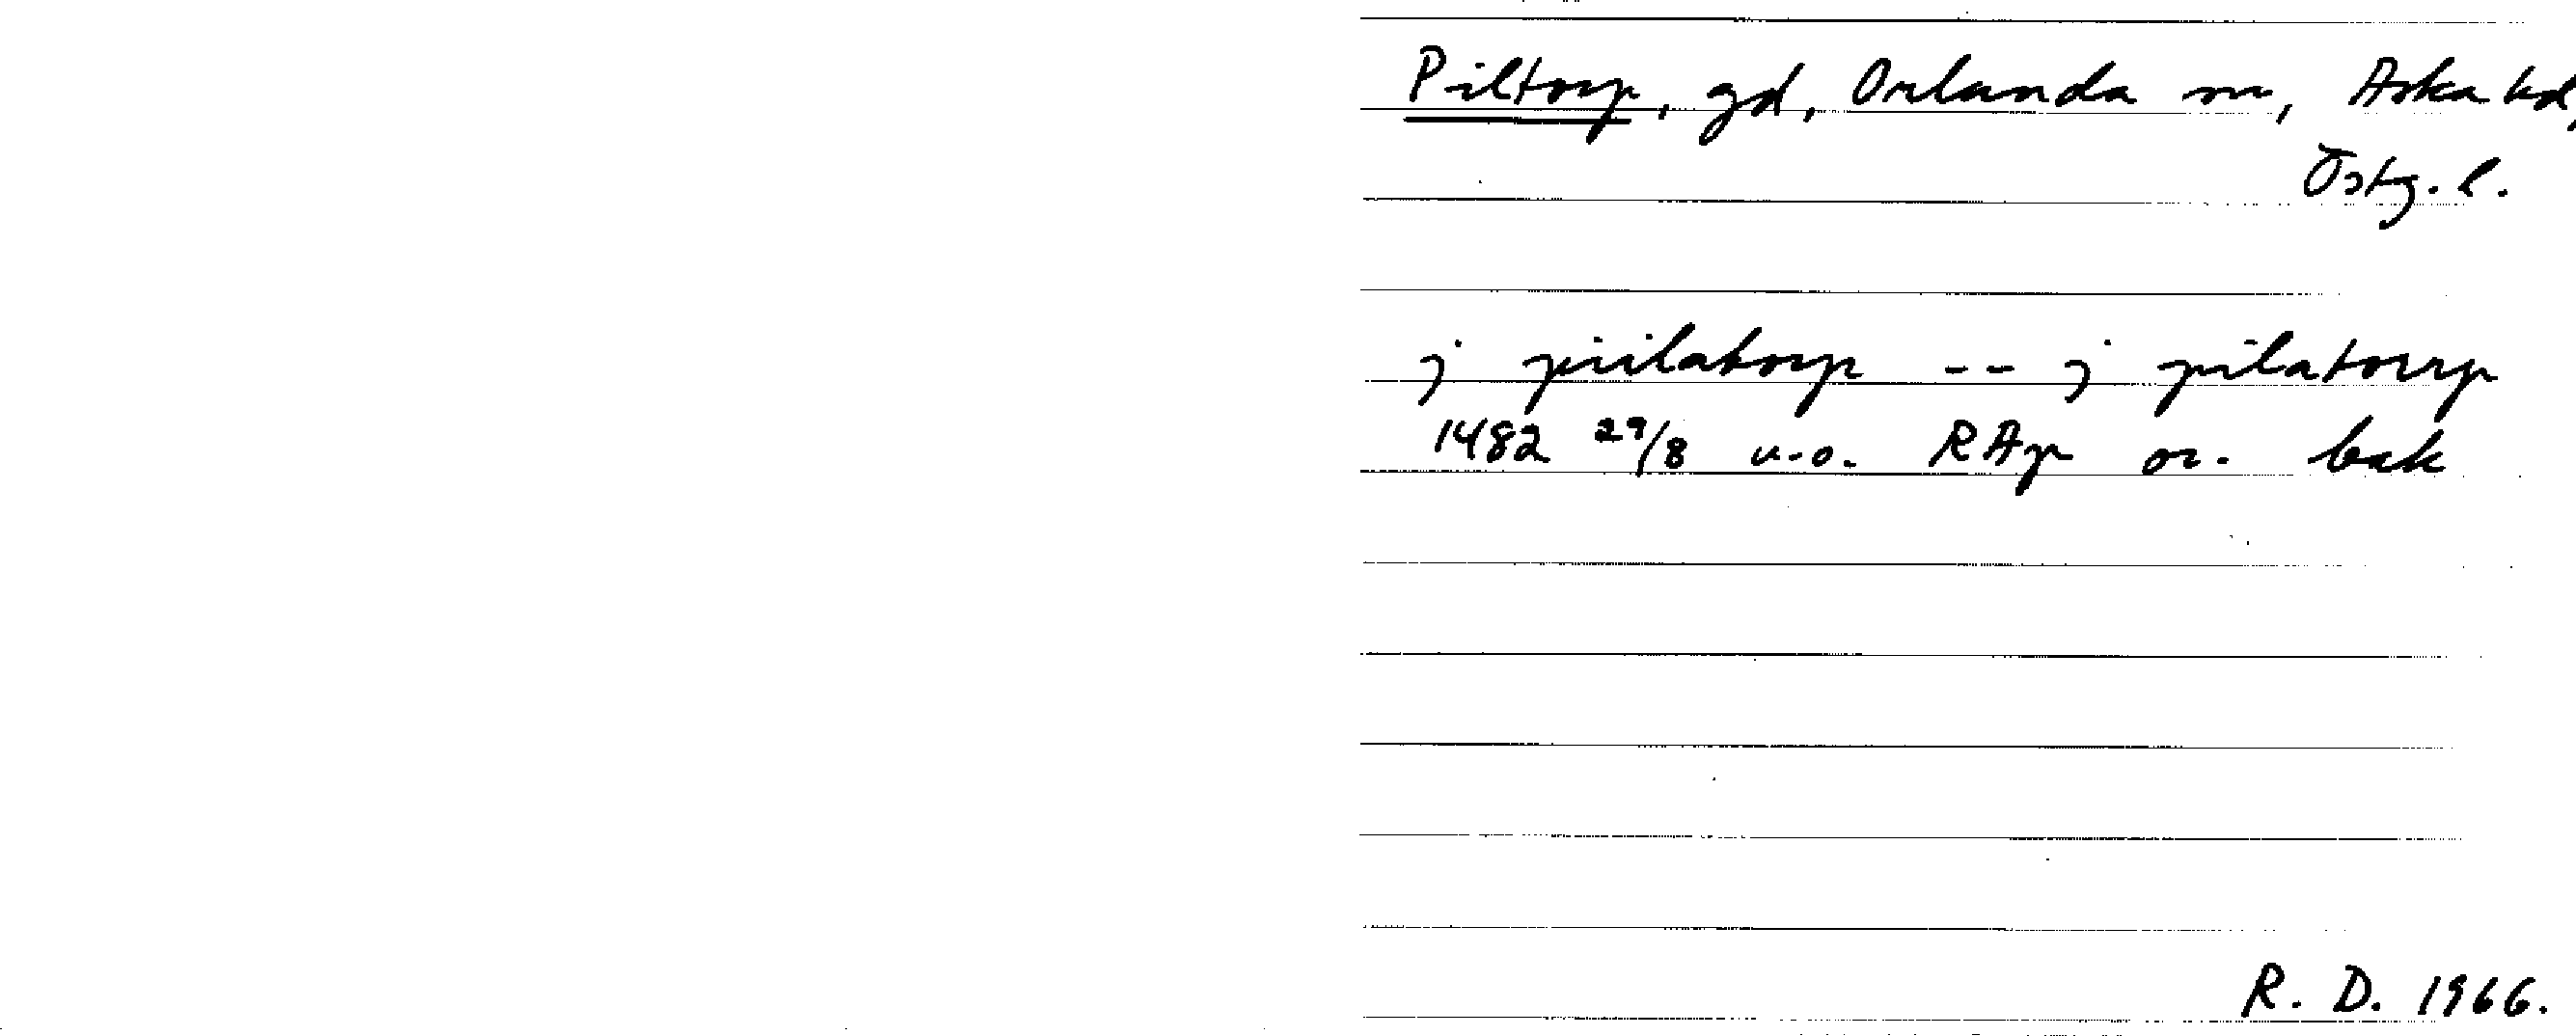 Piltorp, gd, Orlunda sn, Aska hd,
Östg. l.
j piilatorp -- j pilatorp
1482 29/8 u.o. RAp or. bak
R. D. 1966.